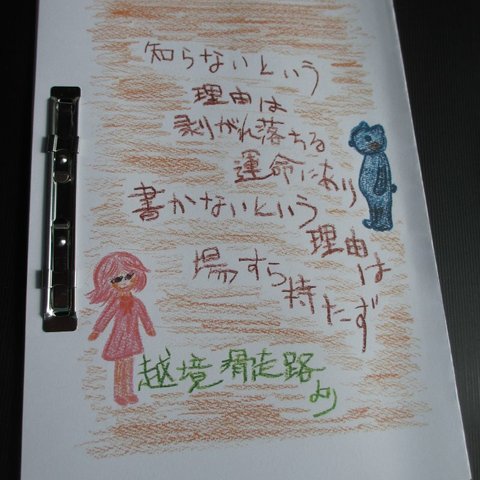 知らないという
理由は
剥がれ落ちる
運命にあり
書かないという
理由は
場すら持たず
越境滑走路
より